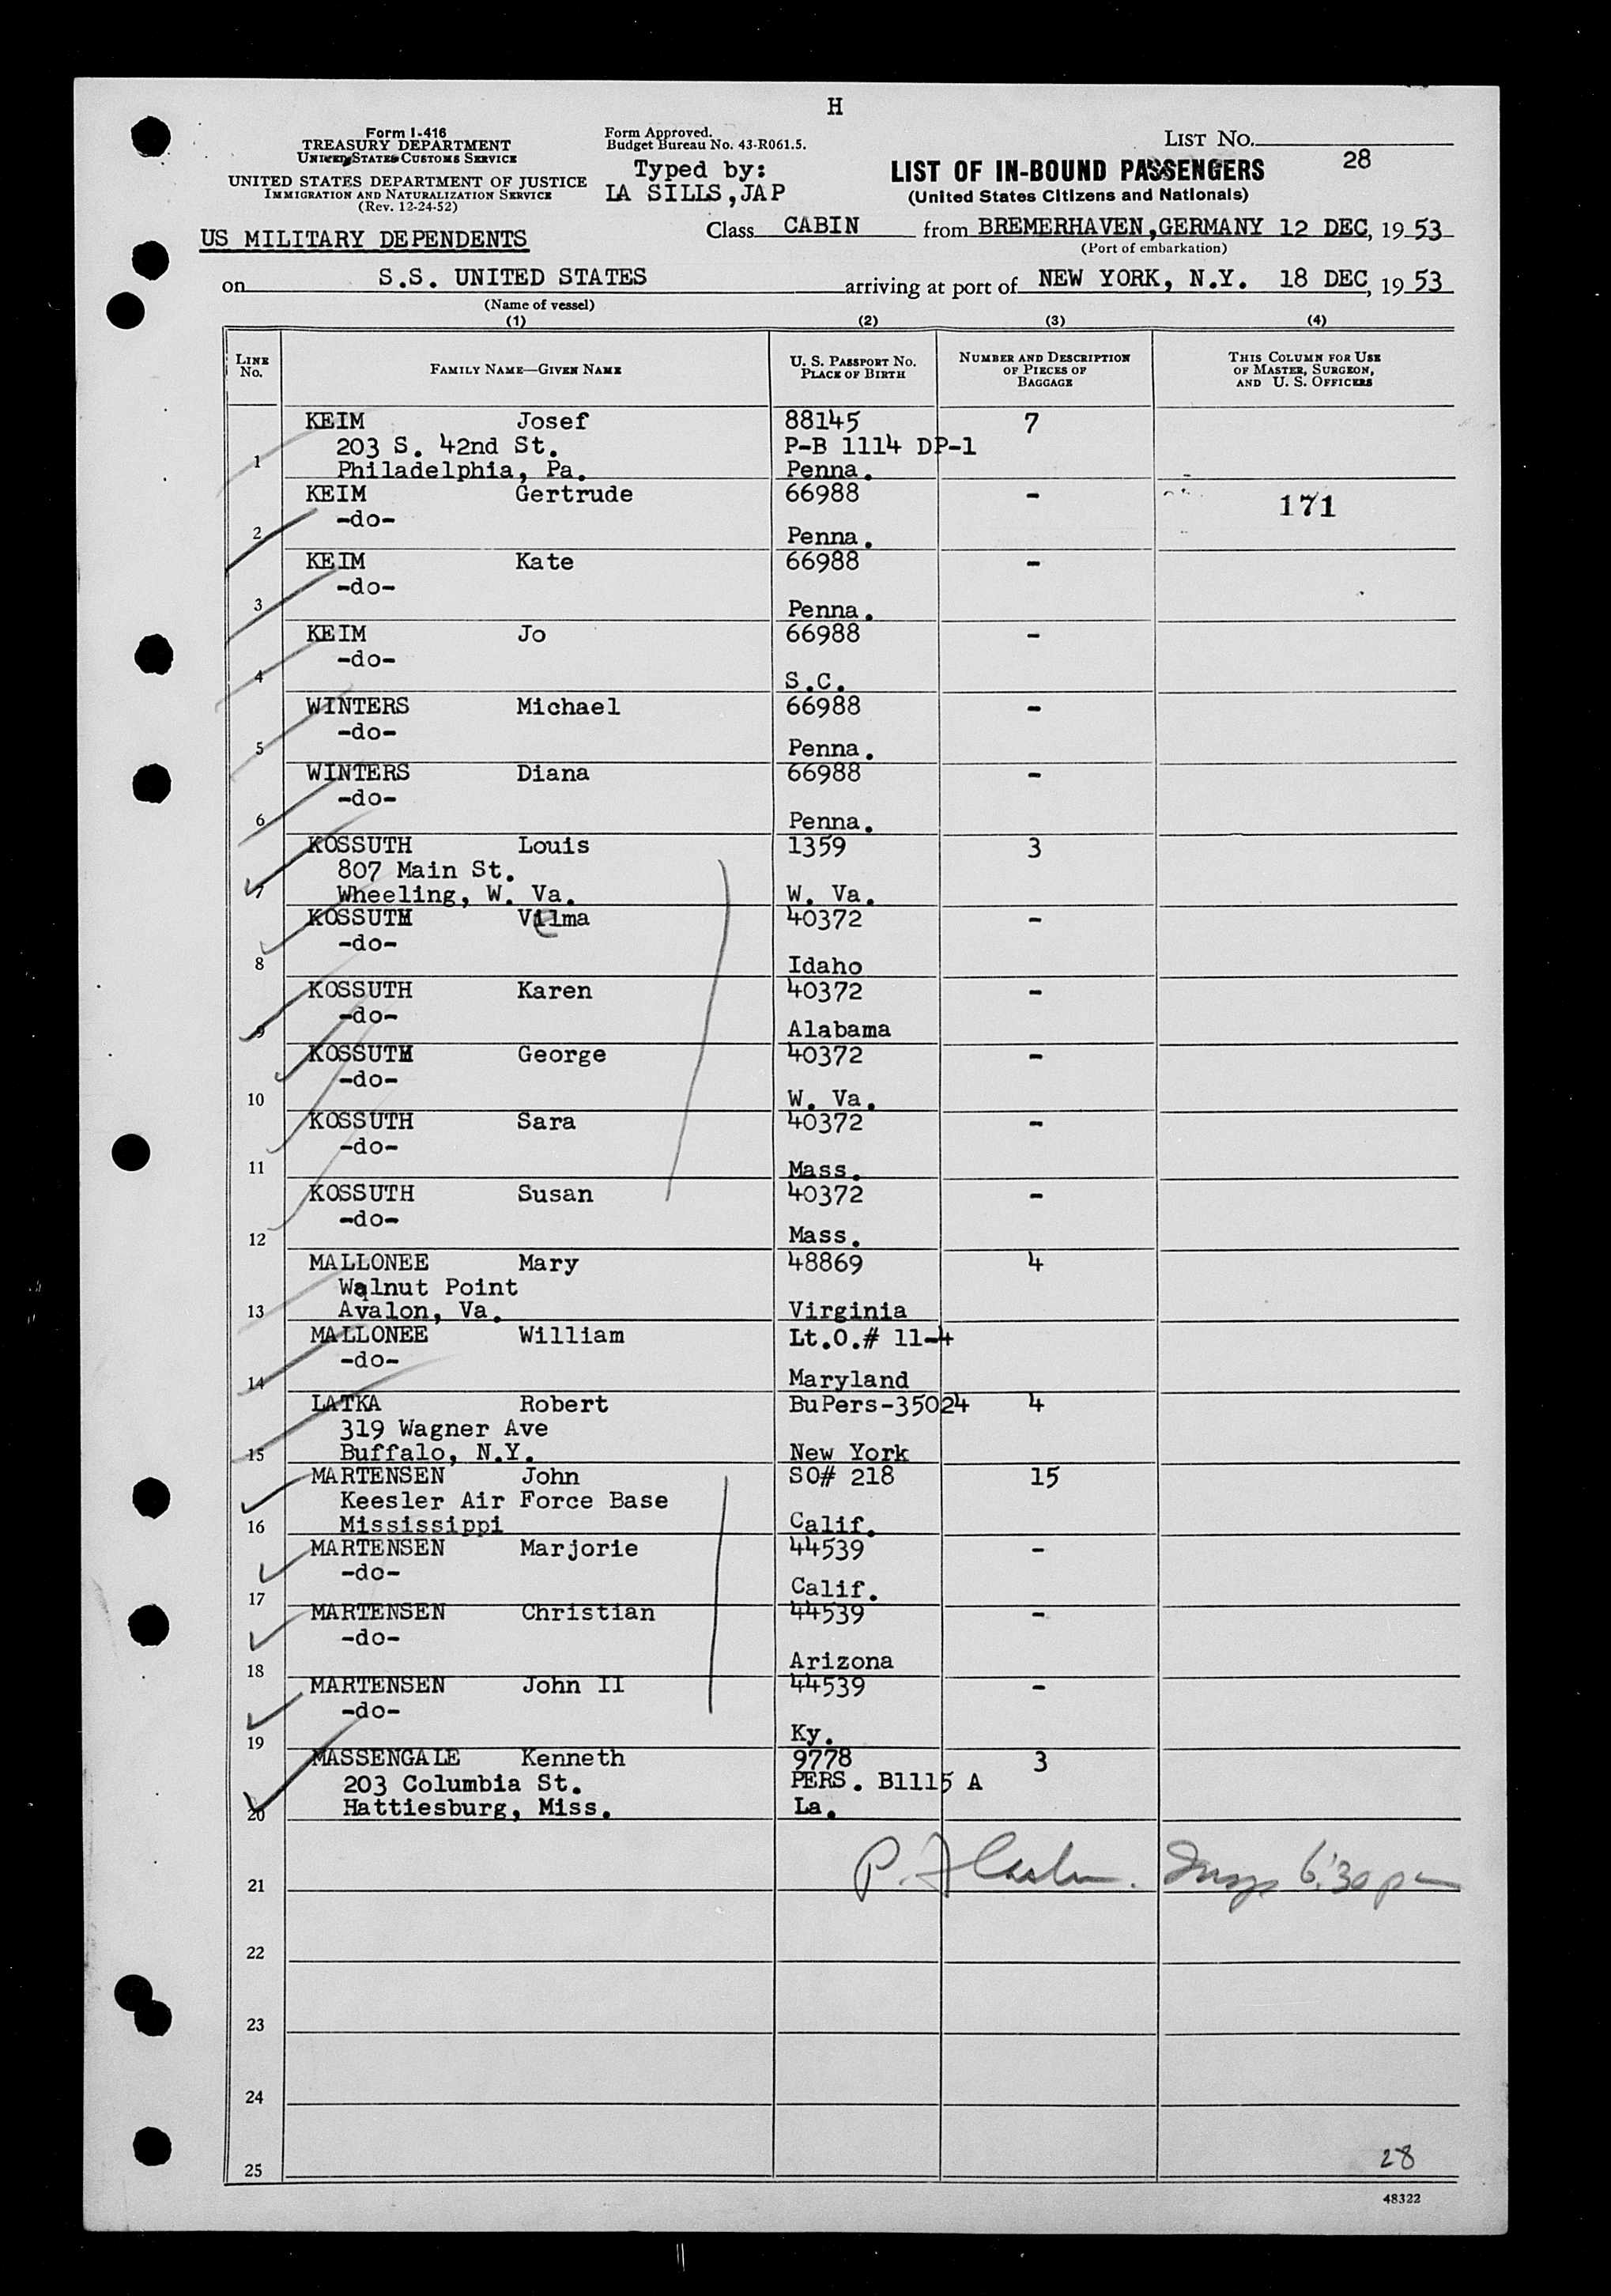 H
Form I-416
TREASURY DEPARTMENT
UNITED STATES CUSTOMS SERVICE
UNITED STATES DEPARTMENT OF JUSTICE
IMMIGRATION AND NATURALIZATION SERVICE
(Rev. 12-24-52)
Form Approved.
Budget Bureau No. 43-R061.5.
Typed by:
LA SILLS,JAP
LIST NO.
28
LIST OF IN-BOUND PASSENGERS
(United States Citizens and Nationals)
US MILITARY DEPENDENTS
Class CABIN from BREMERHAVEN,GERMANY 12 DEC, 1953
(Port of embarkation)
on S.S. UNITED STATES arriving at port of NEW YORK, N.Y. 18 DEC, 1953
(Name of vessel)
(1) (2) (3) (4)
LINE NO. FAMILY NAME—GIVEN NAME U. S. PASSPORT NO. PLACE OF BIRTH NUMBER AND DESCRIPTION OF PIECES OF BAGGAGE THIS COLUMN FOR USE OF MASTER, SURGEON, AND U. S. OFFICERS
KEIM Josef 88145 7
203 S. 42nd St. P-B 1114 DP-1
1 Philadelphia, Pa. Penna.
KEIM Gertrude 66988 - 171
-do-
2 Penna.
KEIM Kate 66988 -
-do-
3 Penna.
KEIM Jo 66988 -
-do-
4 S.C.
WINTERS Michael 66988 -
-do-
5 Penna.
WINTERS Diana 66988 -
-do-
6 Penna.
KOSSUTH Louis 1359 3
807 Main St.
7 Wheeling, W. Va. W. Va.
KOSSUTH Vilma 40372 -
-do-
8 Idaho
KOSSUTH Karen 40372 -
-do-
9 Alabama
KOSSUTH George 40372 -
-do-
10 W. Va.
KOSSUTH Sara 40372 -
-do-
11 Mass.
KOSSUTH Susan 40372 -
-do-
12 Mass.
MALLONEE Mary 48869 4
Walnut Point
13 Avalon, Va. Virginia
MALLONEE William Lt.O.# 11-4
-do-
14 Maryland
LATKA Robert BuPers-35024 4
319 Wagner Ave
15 Buffalo, N.Y. New York
MARTENSEN John SO# 218 15
Keesler Air Force Base
16 Mississippi Calif.
MARTENSEN Marjorie 44539 -
-do-
17 Calif.
MARTENSEN Christian 44539 -
-do-
18 Arizona
MARTENSEN John II 44539 -
-do-
19 Ky.
MASSENGALE Kenneth 9778 3
203 Columbia St. PERS. B1115 A
20 Hattiesburg, Miss. La.
21 P. 6:30 pm
22
23
24
25 28
48322